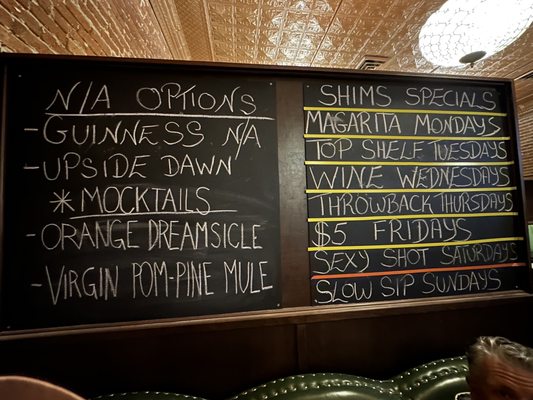 N/A OPTIONS
- GUINNESS N/A
- UPSIDE DAWN
* MOCKTAILS
- ORANGE DREAMSICLE
- VIRGIN POM-PINE MULE
SHIMS SPECIALS
MAGARITA MONDAYS
TOP SHELF TUESDAYS
WINE WEDNESDAYS
THROWBACK THURSDAYS
$5 FRIDAYS
SEXY SHOT SATURDAYS
SLOW SIP SUNDAYS